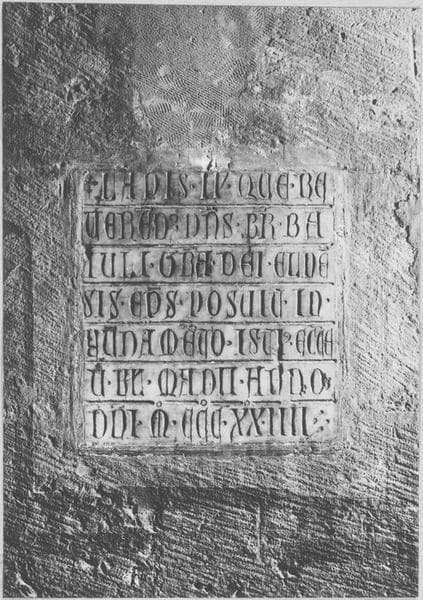 LAPIS · IP · QUE · RE
VEREND · DNS · BR · BA
IULI · GRA · DEI · ELNE
SIS · EPS · POSUIT · IN ·
FUNAMETO · ISTI · ECCE
V · KL · MADII · ANNO ·
DNI · M · CCC · XXIIII